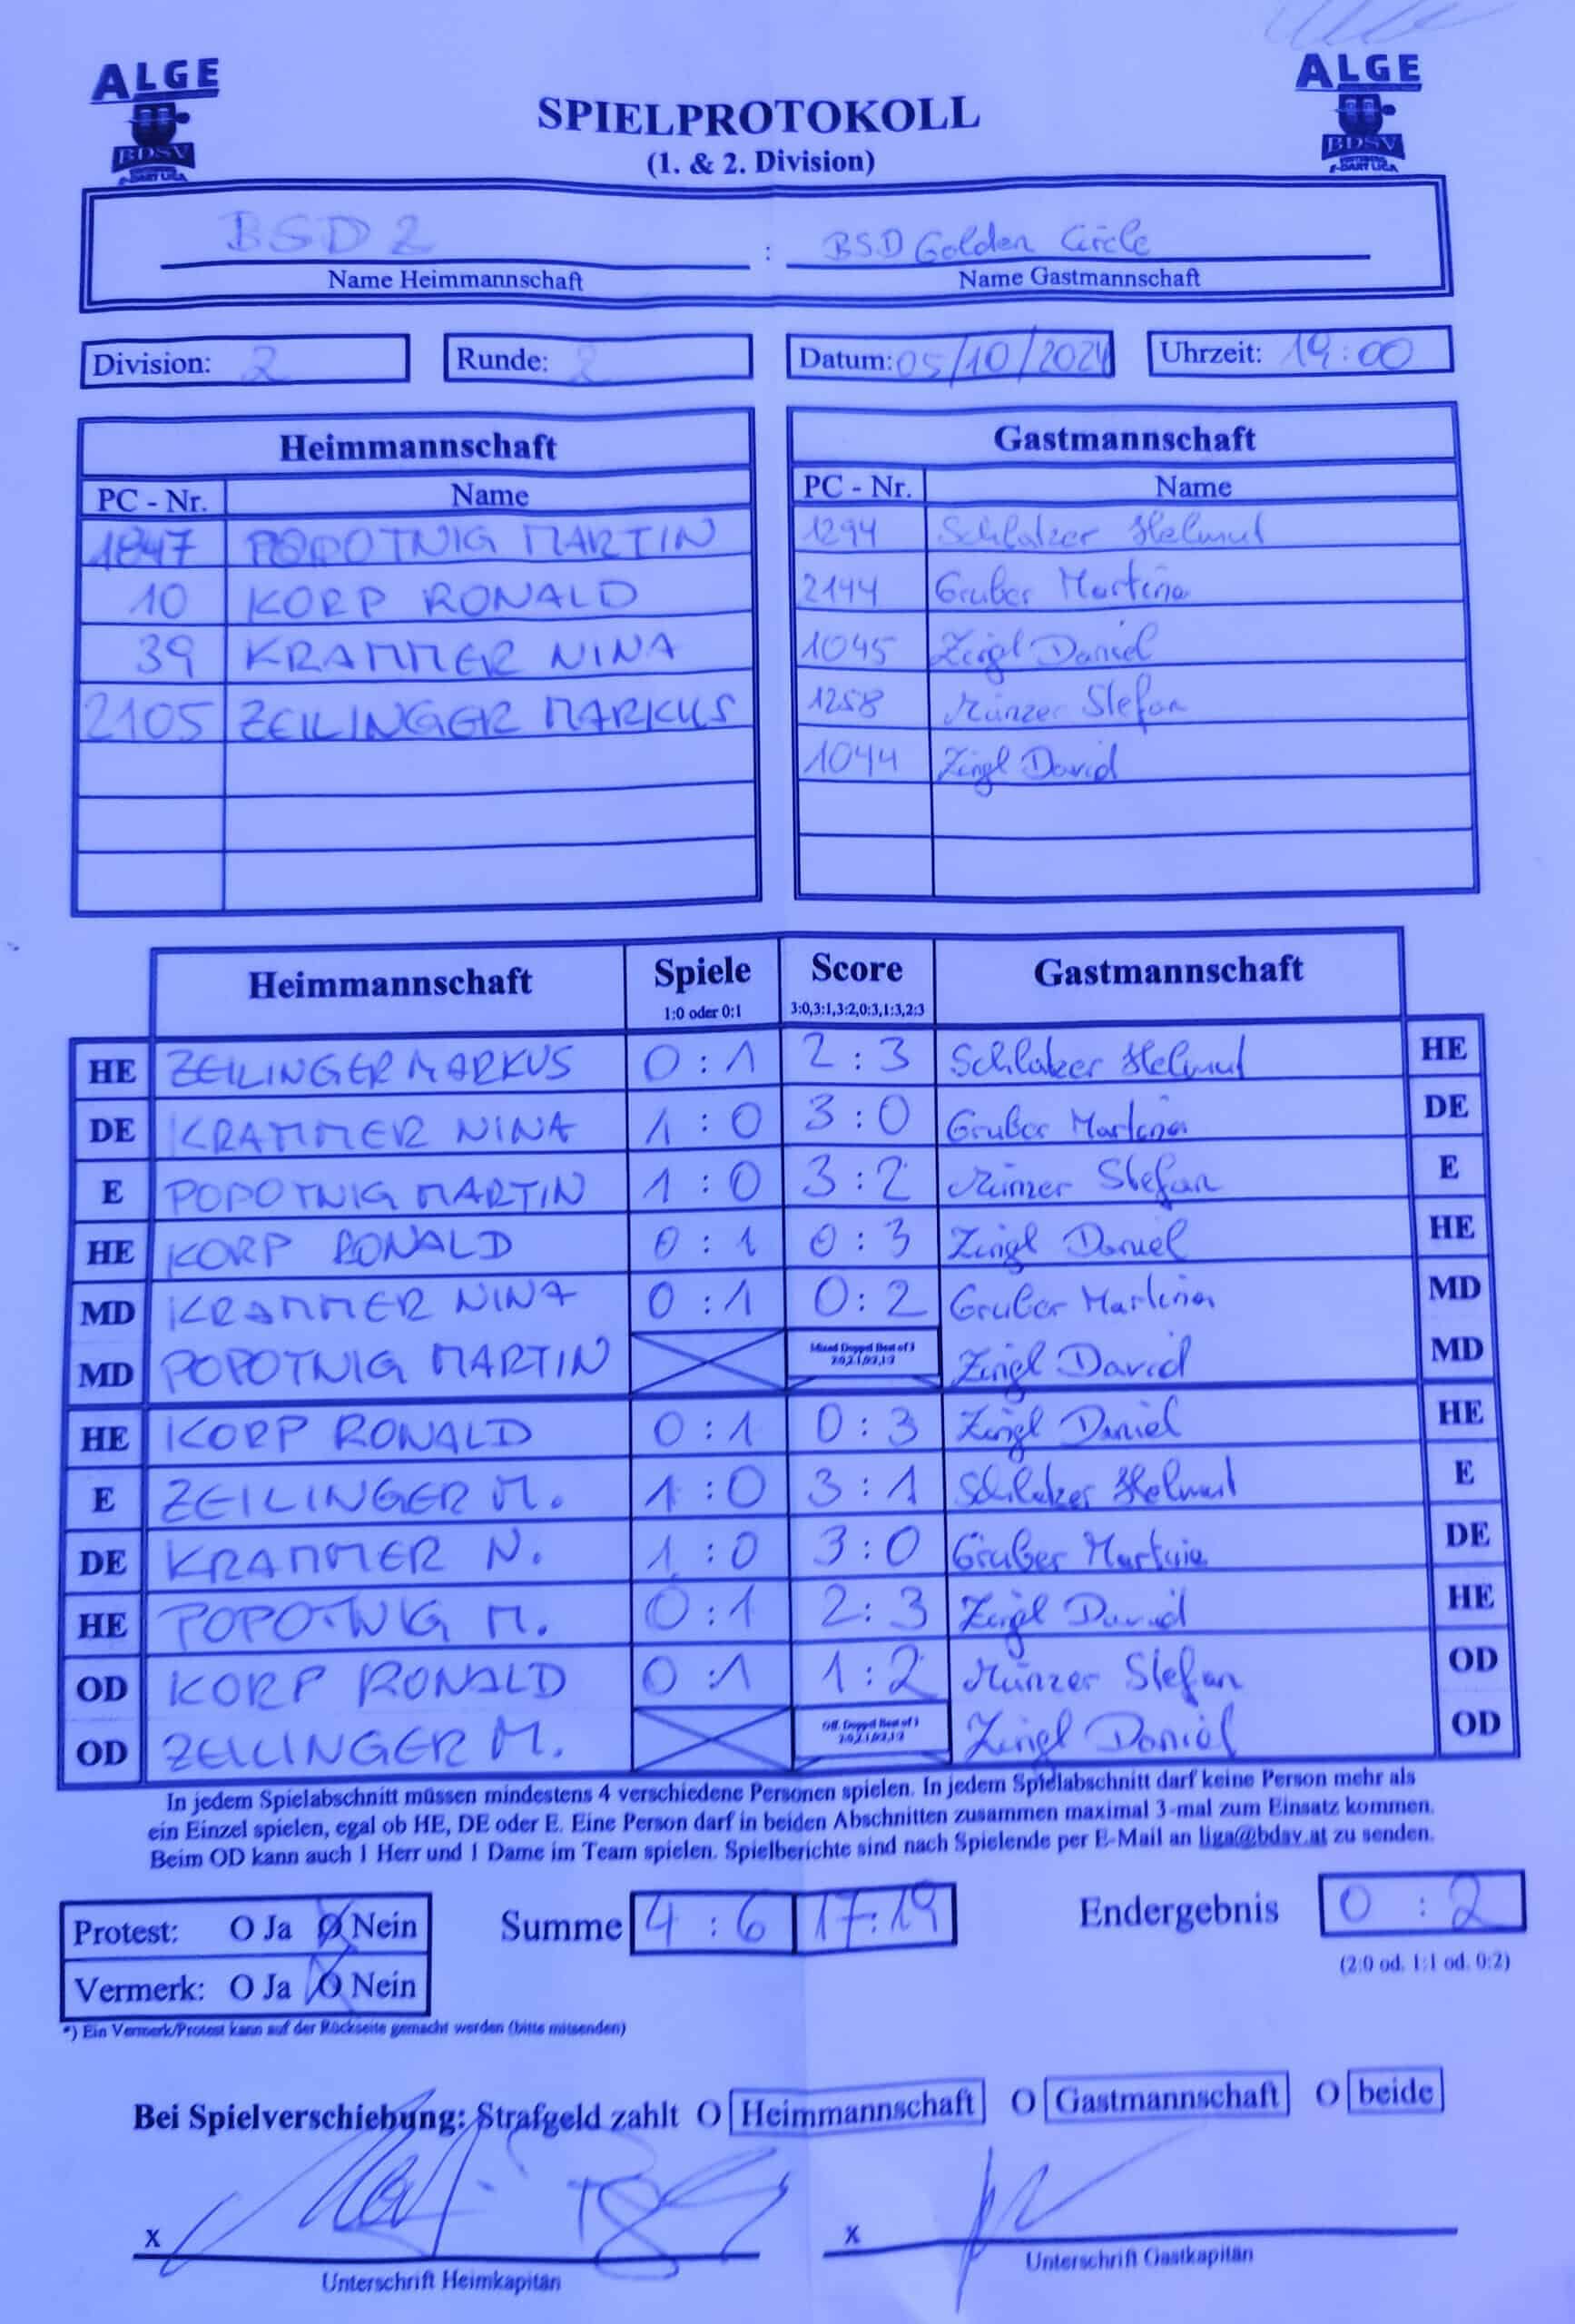 ALGE
BDSV
ALGE
BDSV
SPIELPROTOKOLL
(1. & 2. Division)
BSD 2 : BSD Golden Circle
Name Heimmannschaft Name Gastmannschaft
Division: 2 Runde: 2 Datum: 05/10/2024 Uhrzeit: 19:00
Heimmannschaft
PC - Nr. Name
1847 POPOTNIG MARTIN
10 KORP RONALD
39 KRAMMER NINA
2105 ZEILINGER MARKUS
Gastmannschaft
PC - Nr. Name
1294 Schlatzer Helmut
2144 Gruber Martina
1045 Zingl Daniel
1258 Münzer Stefan
1044 Zingl David
Heimmannschaft Spiele Score Gastmannschaft
1:0 oder 0:1 3:0,3:1,3:2,0:3,1:3,2:3
HE ZEILINGER MARKUS 0:1 2:3 Schlatzer Helmut HE
DE KRAMMER NINA 1:0 3:0 Gruber Martina DE
E POPOTNIG MARTIN 1:0 3:2 Münzer Stefan E
HE KORP RONALD 0:1 0:3 Zingl Daniel HE
MD KRAMMER NINA 0:1 0:2 Gruber Martina MD
MD POPOTNIG MARTIN Mixed Doppel Best of 3 Zingl David MD
2:0,2:1,0:2,1:2
HE KORP RONALD 0:1 0:3 Zingl Daniel HE
E ZEILINGER M. 1:0 3:1 Schlatzer Helmut E
DE KRAMMER N. 1:0 3:0 Gruber Martina DE
HE POPOTNIG M. 0:1 2:3 Zingl David HE
OD KORP RONALD 0:1 1:2 Münzer Stefan OD
OD ZEILINGER M. Off. Doppel Best of 3 Zingl Daniel OD
2:0,2:1,0:2,1:2
In jedem Spielabschnitt müssen mindestens 4 verschiedene Personen spielen. In jedem Spielabschnitt darf keine Person mehr als
ein Einzel spielen, egal ob HE, DE oder E. Eine Person darf in beiden Abschnitten zusammen maximal 3-mal zum Einsatz kommen.
Beim OD kann auch 1 Herr und 1 Dame im Team spielen. Spielberichte sind nach Spielende per E-Mail an liga@bdsv.at zu senden.
Protest: O Ja O Nein Summe 4:6 17:19 Endergebnis 0:2
Vermerk: O Ja O Nein (2:0 od. 1:1 od. 0:2)
*) Ein Vermerk/Protest kann auf der Rückseite gemacht werden (bitte mitsenden)
Bei Spielverschiebung: Strafgeld zahlt O Heimmannschaft O Gastmannschaft O beide
x x
Unterschrift Heimkapitän Unterschrift Gastkapitän